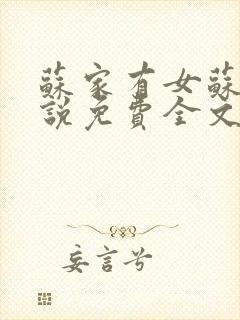 蘇家有女蘇
說免費全文
妄言兮